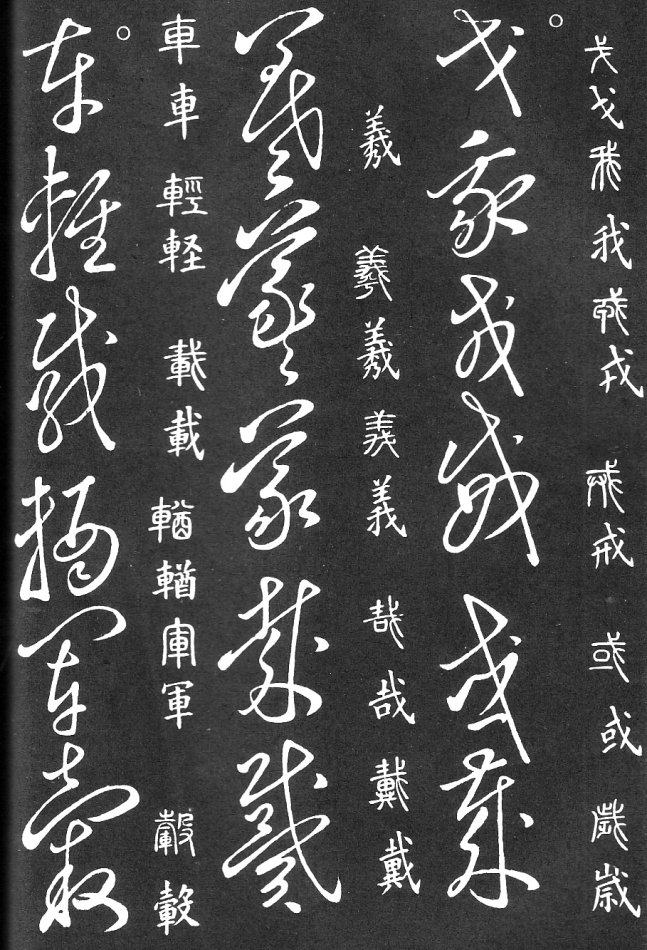 戈戈我我戎戎戒戒或或歲歲
戈我戎戒或歲
羲羲羲義義哉哉戴戴
羲羲義哉戴
車車輕軽載載輶輶軍軍轂轂
車輕載輶軍轂